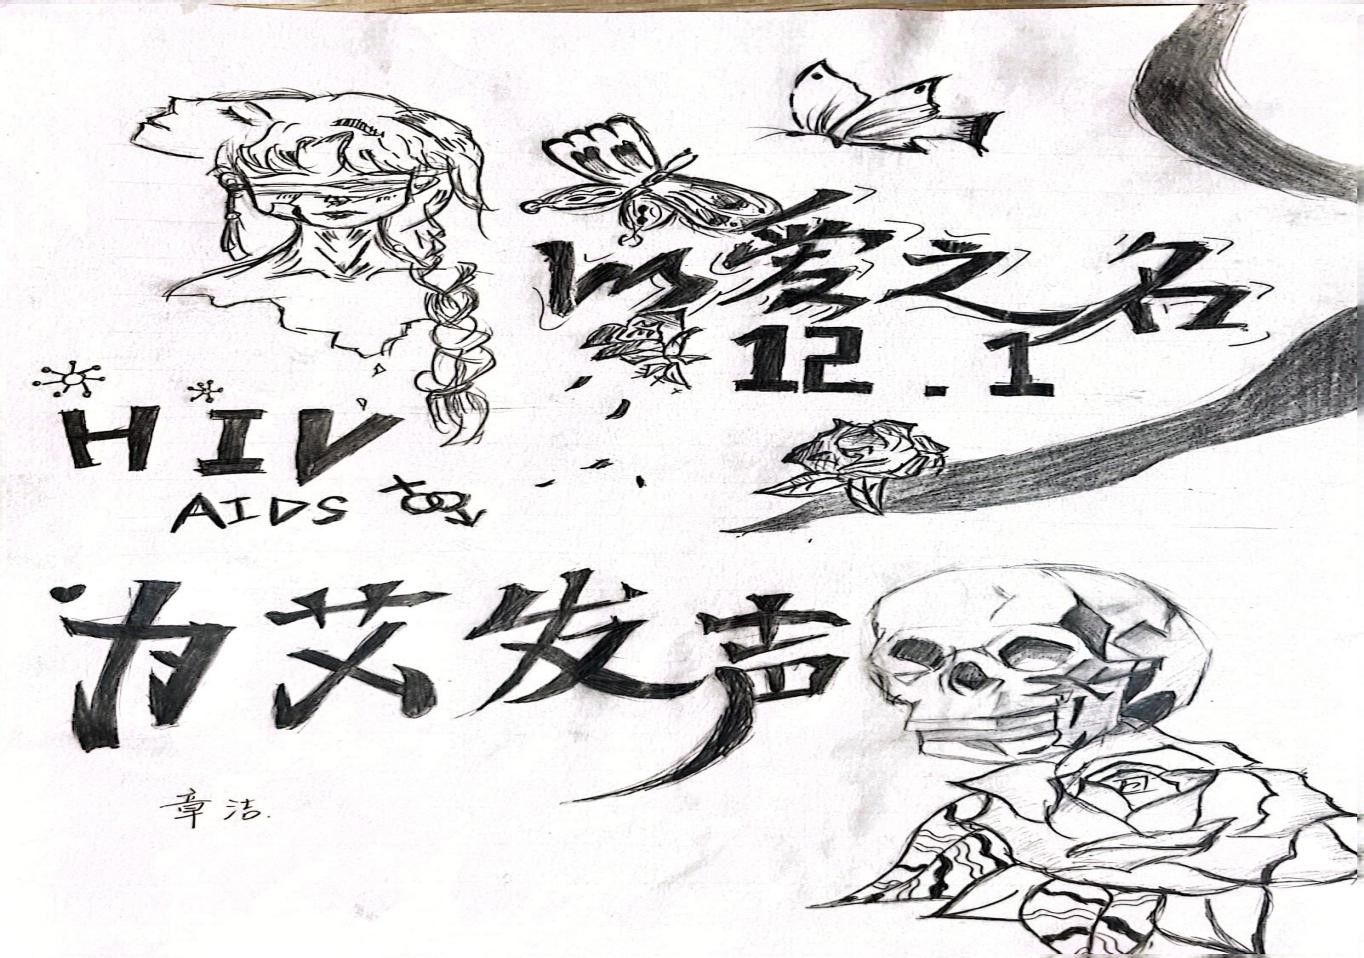 以爱之名
12.1
HIV
AIDS
为艾发声
章洁.